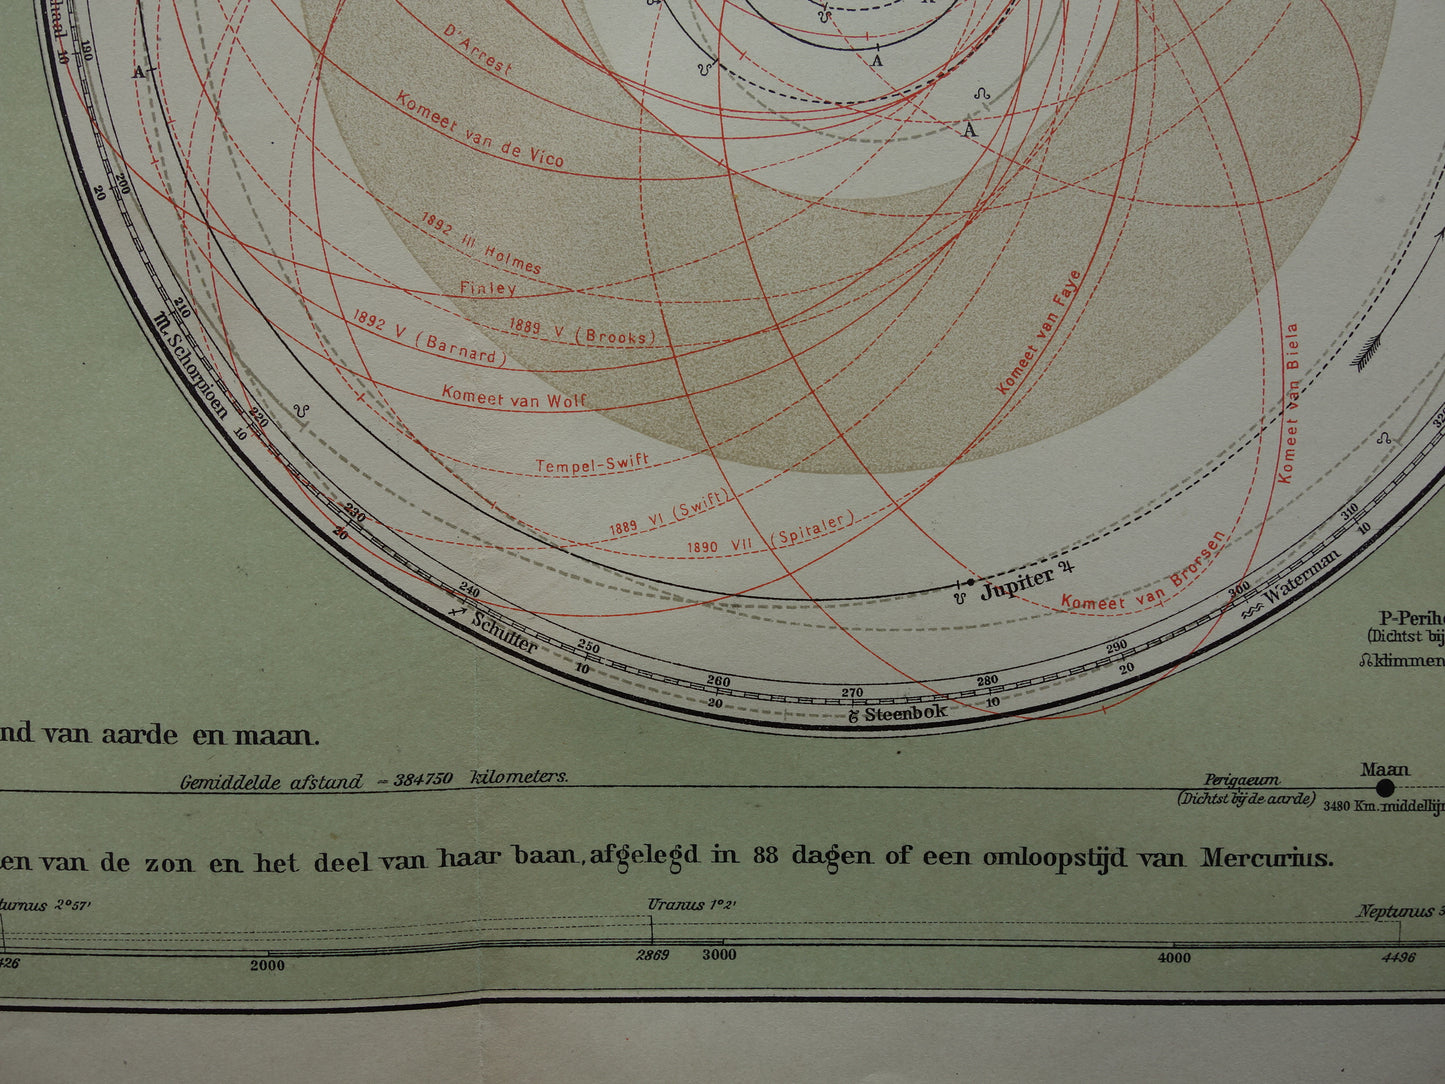 A
D'Arrest
Komeet van de Vico
1892 III Holmes
Finley
1889 V (Brooks)
1892 V (Barnard)
Komeet van Wolf
Tempel-Swift
1889 VI (Swift)
1890 VII (Spitaler)
Komeet van Faye
Komeet van Biela
Komeet van Brorsen
Jupiter ♃
☋
A
☊
A
A
☋
☋
☋
☊
10
190
20
200
210
♏ Schorpioen
220
10
230
20
240
♐ Schutter
250
10
260
20
270
♑ Steenbok
280
10
290
20
300
♒ Waterman
310
10
P-Perihe
(Dichtst bij
☊klimmen
nd van aarde en maan.
Gemiddelde afstand = 384750 kilometers.
Perigaeum
(Dichtst bij de aarde)
Maan
3480 Km. middellijn
en van de zon en het deel van haar baan, afgelegd in 88 dagen of een omloopstijd van Mercurius.
turnus 2°57'
Uranus 1°2'
Neptunus 3
426
2000
2869
3000
4000
4496